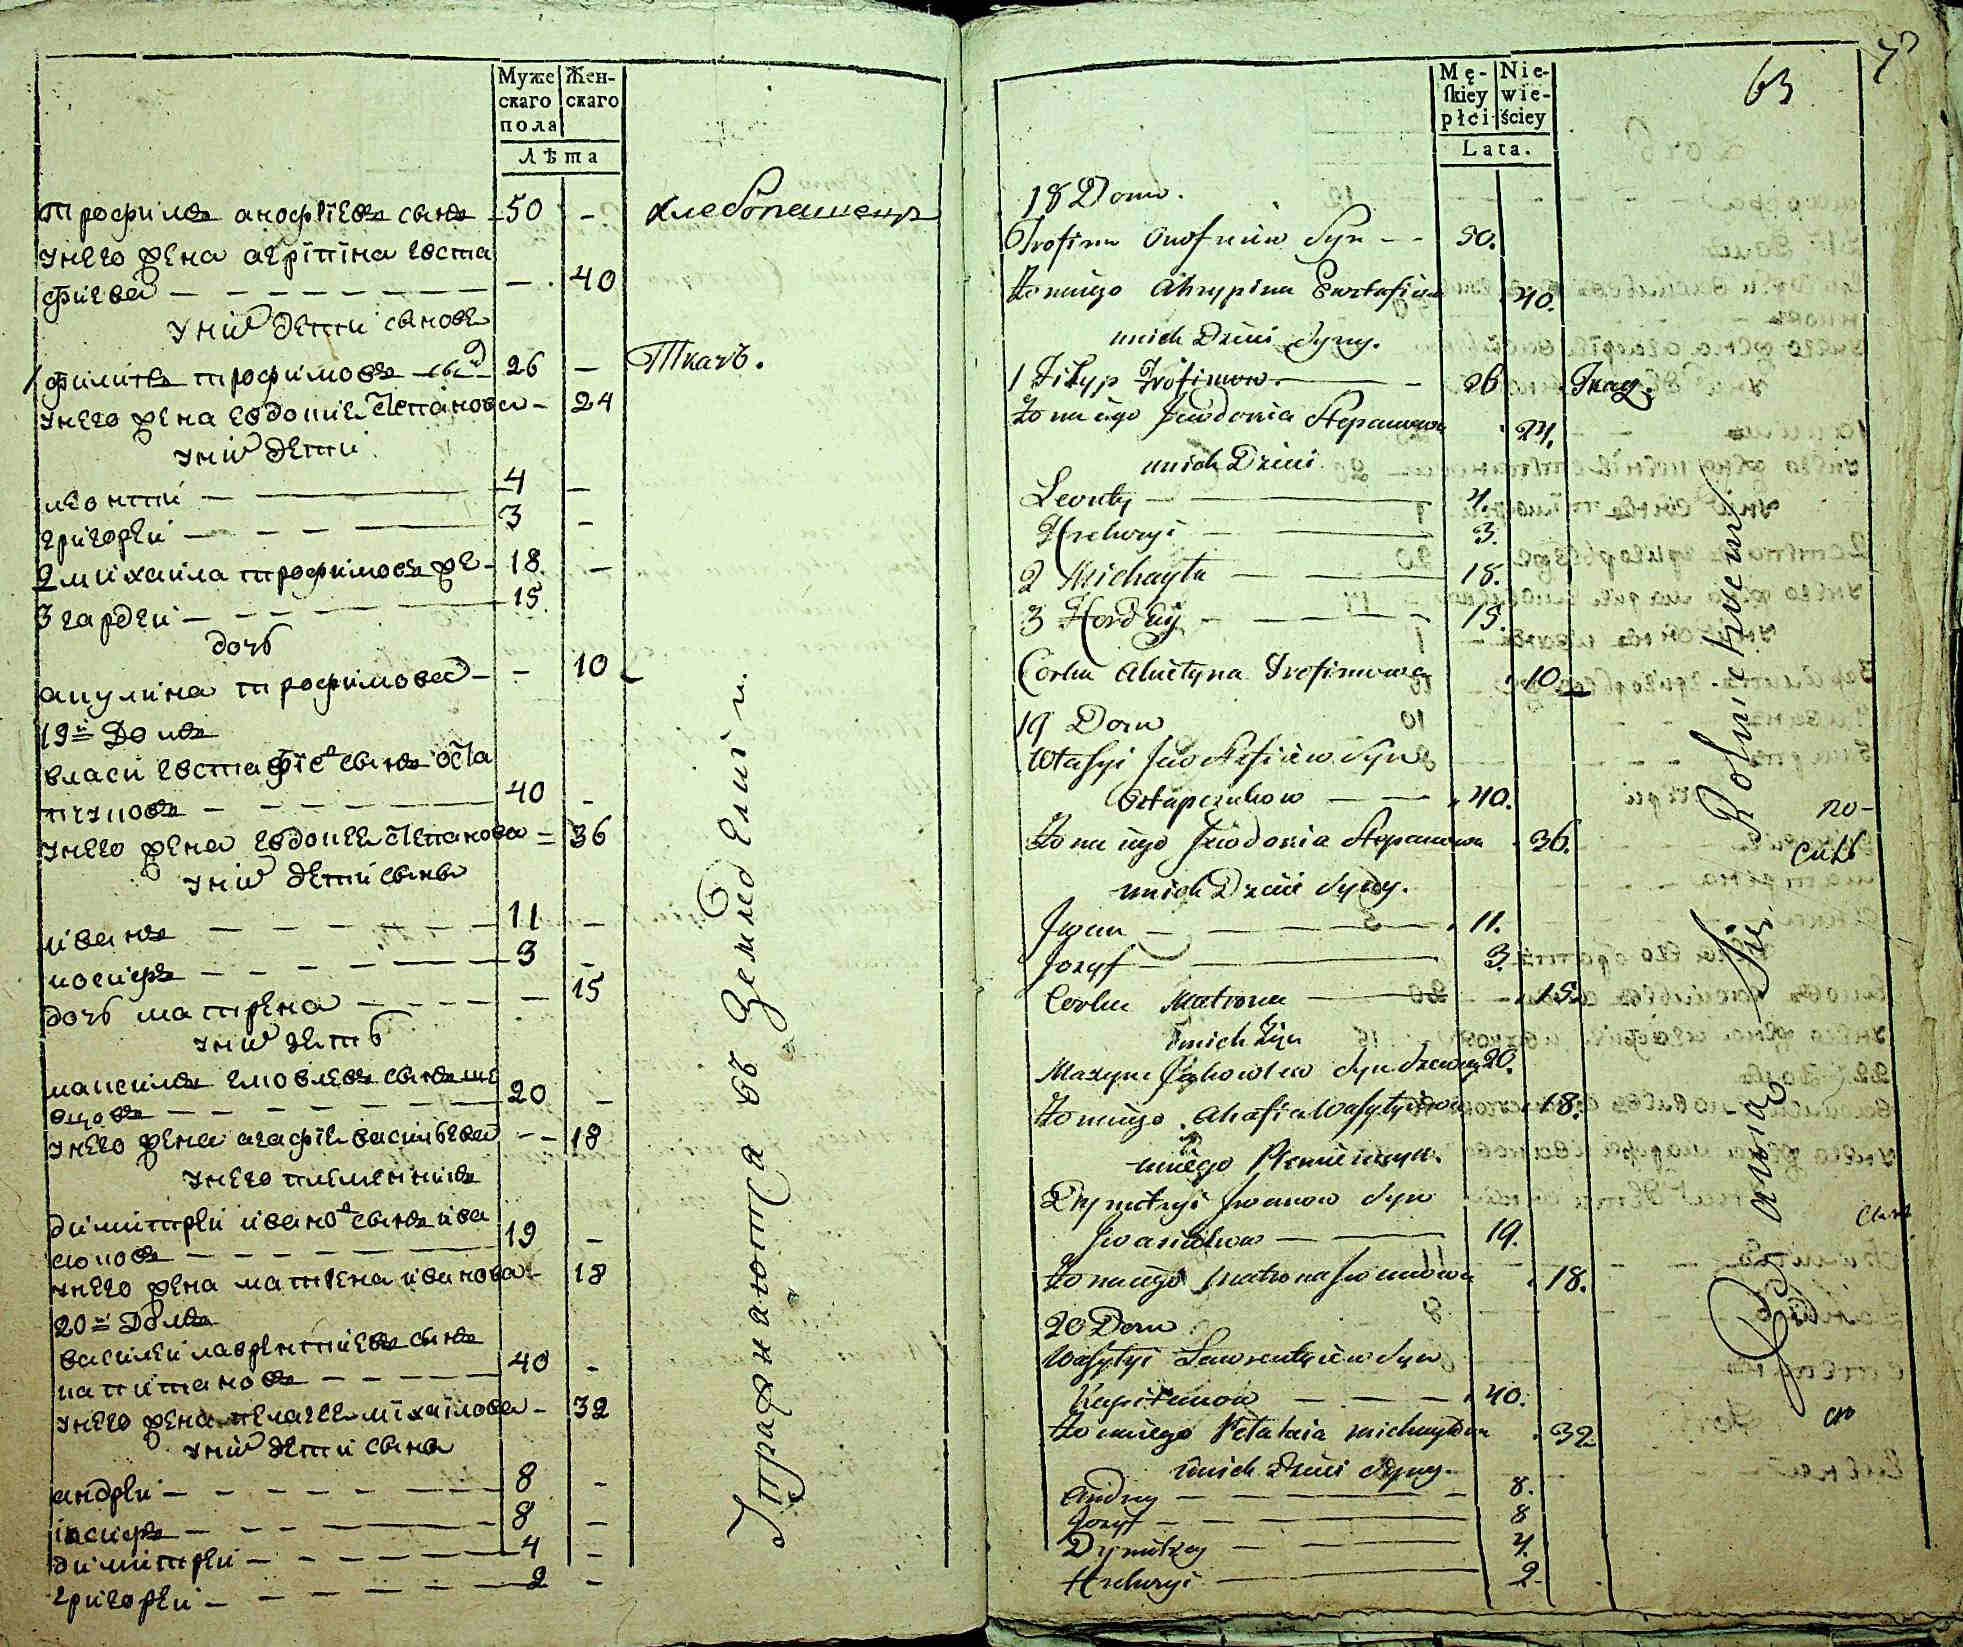 Муже
скаго
пола
Жен-
скаго
Лѣта
трофимъ анофріевъ сынъ - 50 - хлебопашецъ
унего жена агріпіна евста
фиева - - 40
уних дети сынове
1 филипъ трофимовъ 26 - Ткачъ.
унего жена евдокие степанова - 24
уних дети
леонтий - 4 -
григорей - 3 -
2 михаила трофимовъ - 18 -
3 гардей - 15
дочь
акулина трофимова - - 10
19й домъ
власи евстафіевъ сынъ оста
пчуковъ - 40 -
унего жена евдокее степанова - 36
уних дети сыны
иванъ - 11 -
иосифъ - 3 -
дочь матрена - - 15
уних зять
максимъ яковлевъ сынъ ше
вцовъ - 20 -
унего жена агафіе василева - - 18
унего племенникъ
димитрей ивановъ сынъ ива
сюковъ - 19 -
унего жена матрена иванова - 18
20й домъ
василей лаврентиевъ сынъ
капитановъ - 40 -
унего жена пелагее михаилова - 32
уних дети сыны
андрей - 8 -
иосифъ - 8 -
димитрей - 4 -
григорей - 2 -
Упражняются въ Земледелии.
63
Mę-
ſkiey
płci
Nie-
wie-
ściey
Lata.
18 Dom.
Trofim Onofriiow Syn - - 50.
Żona iego Ahrypina Ewstafiewa 40.
unich Dzieci Syny.
1 Filyp Trofimow - 26 Tkacz.
Żona iego Jewdokia Stepanowa 24.
unich Dzieci
Leonty - 4.
Hrehoryi - 3.
2 Michayła - 18.
3 Hordey - 15.
Corka Akulyna Trofimowa 10
19 Dom
Własyi Jewstafiiew Syn
Ostapczukow - 40.
Żona iego Jewdokia Stepanowa 36.
unich Dzieci Syny.
Jwan - 11.
Jozyf - 3.
Corka Matrona - 15.
unich Zięć
Maxym Jakowlew Syn Szewcow 20.
Żona iego Ahafia Wasylyiewa 18.
uniego Plemiennyk.
Dymitryi Jwanow Syn
Jwasiukow - 19.
Żona iego Matrona Jwanowa 18.
20 Dom
Wasylyi Lawrentyiew Syn
Kapitanow - 40.
Żona iego Pelahia Michayłowa 32
unich Dzieci Syny.
Andrey - 8.
Jozyf - 8
Dymitrey - 4.
Hrehoryi - 2.
Bawią Się Rolnictwem